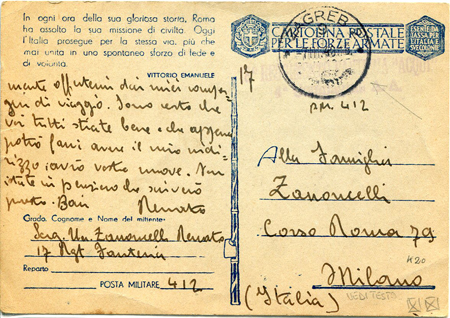 In ogni ora della sua gloriosa storia, Roma
ha assolto la sua missione di civiltà. Oggi
l'Italia prosegue per la stessa via, più che
mai unita in uno spontaneo sforzo di fede e
di volontà.
VITTORIO EMANUELE
mente offertemi dai miei compa-
gni di viaggio. Sono certo che
voi tutti state bene e che appena
potrò farvi avere il mio indi-
rizzo avrò vostre nuove. Non
state in pensiero che scriverò
presto. Baci Renato
Grado, Cognome e Nome del mittente
Serg. Un. Zanoncelli Renato
17 Rgt Fanteria
Reparto
POSTA MILITARE 412
ZAGREB
CARTOLINA POSTALE
PER LE FORZE ARMATE
ESENTE DA
TASSA PER
L'ITALIA E
17
P.M. 412
Alla Famiglia
Zanoncelli
Corso Roma 79
K20
Milano
(Italia)
VEDI TESTO